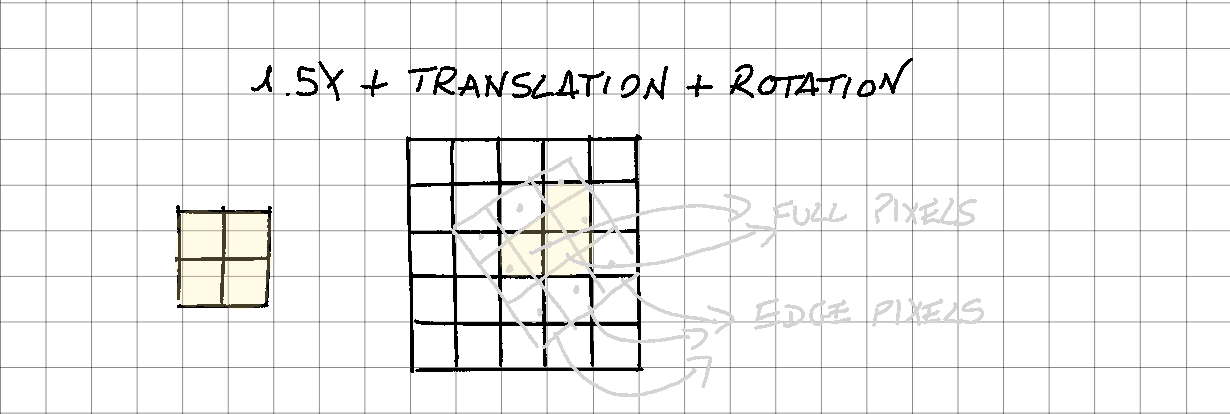 1.5X + TRANSLATION + ROTATION
FULL PIXELS
EDGE PIXELS